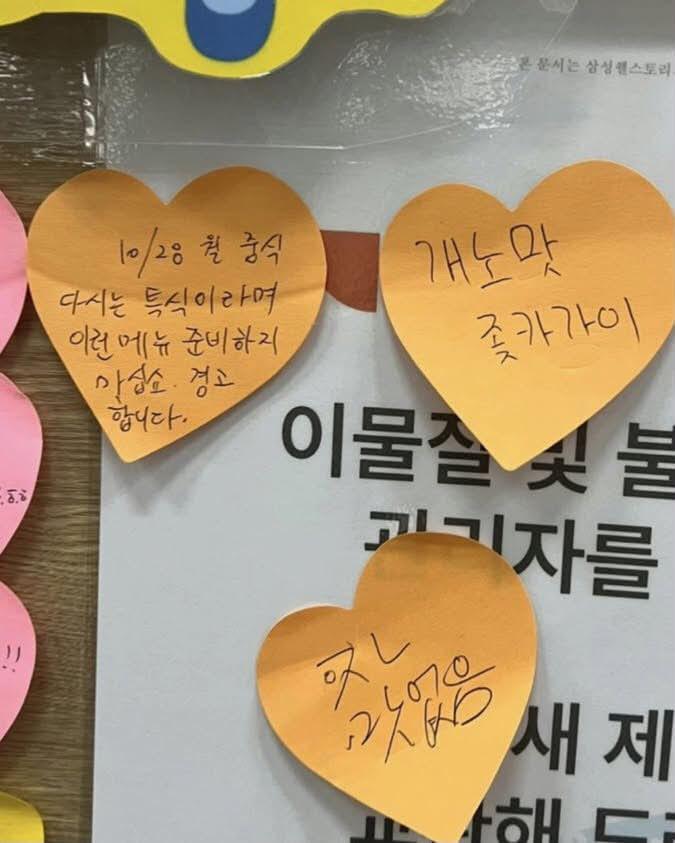 본 문서는 삼성웰스토리
10/28 월 중식
다시는 특식이라며
이런 메뉴 준비하지
마십쇼. 경고
합니다.
개노맛
좆카가이
이물질 및 불
관리자를
맛없음
새 제
!!